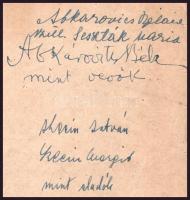 Abkarovics Béláné
szül. Leszták Mária
Abkárovits Béla
mint vevők.
Klein István
Klein Margit
mint eladók